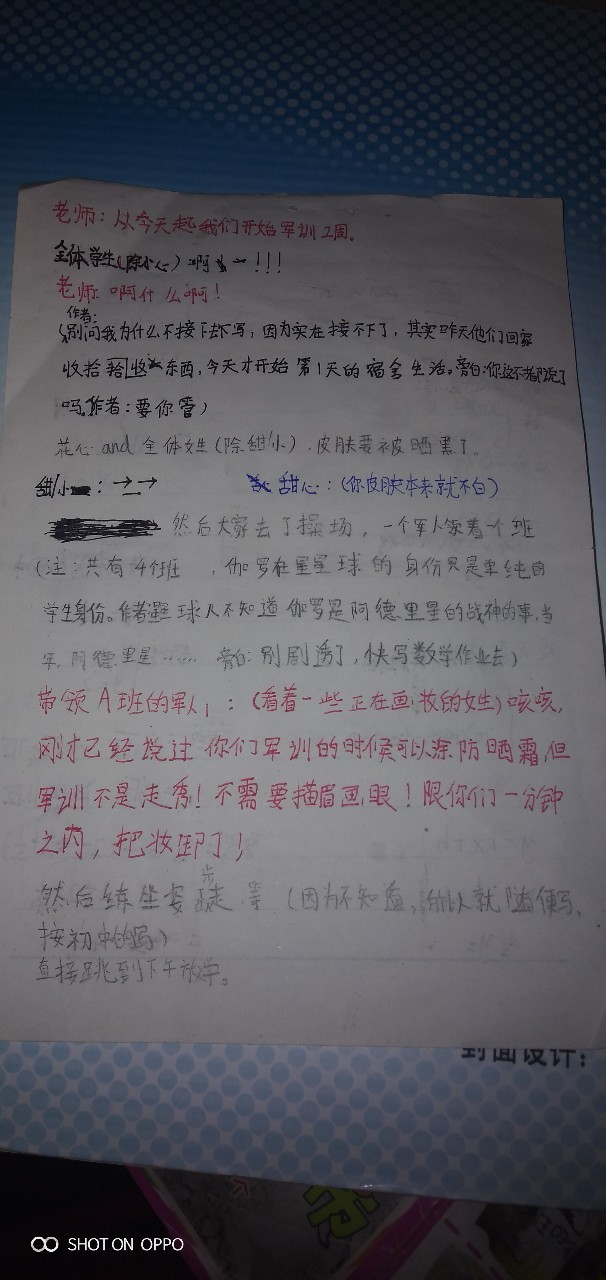 老师：从今天起我们开始军训2周。
全体学生(除小心)：啊——！！！
老师：啊什么啊！
作者：
(别问我为什么不接下去写，因为实在接不下了，其实昨天他们回家
收拾东西，今天才开始第1天的宿舍生活。旁白：你这不都说了
吗。作者：要你管)
花心and全体女生(除甜小)：皮肤要被晒黑了。
甜小：→→
甜心：(你皮肤本来就不白)
然后大家去了操场，一个军人家着一个班
(注：共有4个班，伽罗在星星球的身份只是单纯的
学生身份。作者：星球人不知道伽罗是阿德里星的战神的事，当
年，阿德里星……旁白：别剧透了，快写数学作业去)
带领A班的军人1：(看着一些正在画妆的女生)咳咳，
刚才已经说过你们军训的时候可以涂防晒霜，但
军训不是走秀！不需要描眉画眼！限你们一分钟
之内，把妆卸了！
然后练坐姿 走步 等(因为不知道，所以就随便写，
按初中的写)
直接跳到下午放学。
封面设计：
SHOT ON OPPO